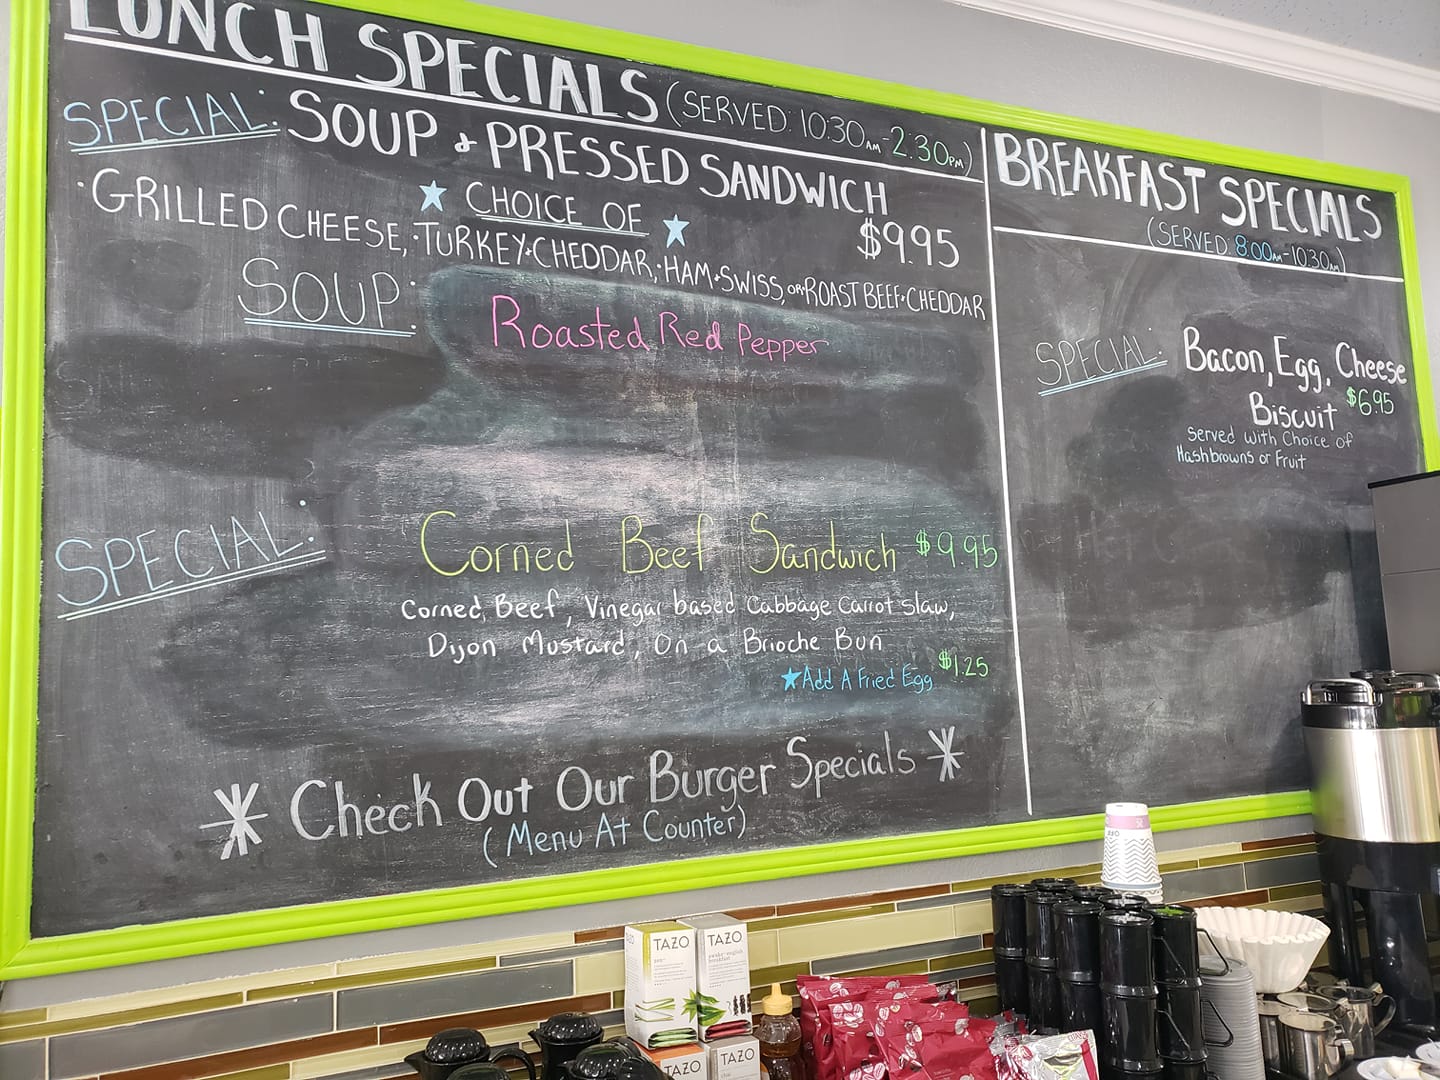 LUNCH SPECIALS (SERVED: 10:30AM-2:30PM)
SPECIAL: SOUP & PRESSED SANDWICH
$9.95
★ CHOICE OF ★
·GRILLED CHEESE, ·TURKEY+CHEDDAR, ·HAM+SWISS, OR ·ROAST BEEF+CHEDDAR
SOUP: Roasted Red Pepper
SPECIAL: Corned Beef Sandwich $9.95
Corned Beef, Vinegar based Cabbage Carrot Slaw,
Dijon Mustard, On a Brioche Bun
★Add A Fried Egg $1.25
Check Out Our Burger Specials
(Menu At Counter)
BREAKFAST SPECIALS
(SERVED: 8:00AM-10:30AM)
SPECIAL: Bacon, Egg, Cheese
Biscuit $6.95
Served with Choice of
Hashbrowns or Fruit
TAZO
zen
TAZO
awake english
breakfast
TAZO
TAZO
chai